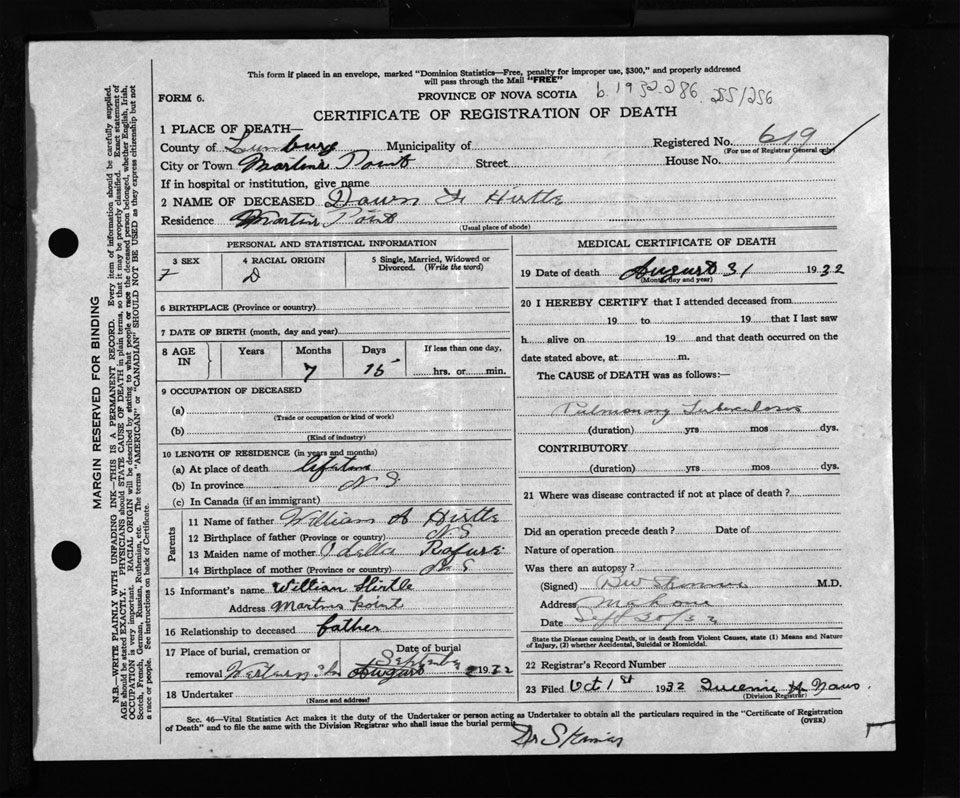 This form if placed in an envelope, marked "Dominion Statistics—Free, penalty for improper use, $300," and properly addressed
will pass through the Mail "FREE"
FORM 6.
PROVINCE OF NOVA SCOTIA
b. 1932-286
CERTIFICATE OF REGISTRATION OF DEATH
1 PLACE OF DEATH—
County of Lunburg Municipality of Registered No. 619
(For use of Registrar General only)
City or Town Martins Point Street House No.
If in hospital or institution, give name
2 NAME OF DECEASED Dawn F Hirtle
Residence Martins Point
(Usual place of abode)
PERSONAL AND STATISTICAL INFORMATION
3 SEX 4 RACIAL ORIGIN 5 Single, Married, Widowed or
Divorced. (Write the word)
F D
6 BIRTHPLACE (Province or country)
7 DATE OF BIRTH (month, day and year)
8 AGE IN Years Months Days If less than one day,
7 15 hrs. or min.
9 OCCUPATION OF DECEASED
(a)
(Trade or occupation or kind of work)
(b)
(Kind of industry)
10 LENGTH OF RESIDENCE (in years and months)
(a) At place of death lifetime
(b) In province N S
(c) In Canada (if an immigrant)
Parents
11 Name of father William A Hirtle
12 Birthplace of father (Province or country) N. S.
13 Maiden name of mother Odella
14 Birthplace of mother (Province or country) N S
15 Informant's name William Hirtle
Address Martins Point
16 Relationship to deceased father
17 Place of burial, cremation or Date of burial
removal Western Shr August September 2 1932
18 Undertaker
(Name and address)
MEDICAL CERTIFICATE OF DEATH
19 Date of death August 31 1932
(Month, day and year)
20 I HEREBY CERTIFY that I attended deceased from
19 to 19 that I last saw
h alive on 19 and that death occurred on the
date stated above, at m.
The CAUSE of DEATH was as follows:—
Pulmonary Tuberculosis
(duration) yrs mos dys.
CONTRIBUTORY
(duration) yrs. mos. dys.
21 Where was disease contracted if not at place of death?
Did an operation precede death? Date of
Nature of operation
Was there an autopsy?
(Signed) M.D.
Address Mahone
Date Sept 30/32
State the Disease causing Death, or in death from Violent Causes, state (1) Means and Nature
of Injury, (2) whether Accidental, Suicidal or Homicidal.
22 Registrar's Record Number
23 Filed Oct 1st 1932
(Division Registrar)
Sec. 46—Vital Statistics Act makes it the duty of the Undertaker or person acting as Undertaker to obtain all the particulars required in the "Certificate of Registration
of Death" and to file the same with the Division Registrar who shall issue the burial permit. (OVER)
Dr
MARGIN RESERVED FOR BINDING
N.B.—WRITE PLAINLY WITH UNFADING INK—THIS IS A PERMANENT RECORD. Every item of information should be carefully supplied.
AGE should be stated EXACTLY. PHYSICIANS should STATE CAUSE OF DEATH in plain terms, so that it may be properly classified. Exact statement of
OCCUPATION is very important. RACIAL ORIGIN will be described by stating to what people or race the deceased person belonged, whether English, Irish,
Scotch, French, German, Russian, Ruthenian, etc. The terms "AMERICAN" or "CANADIAN" SHOULD NOT BE USED as they express citizenship but not
a race or people. See instructions on back of Certificate.